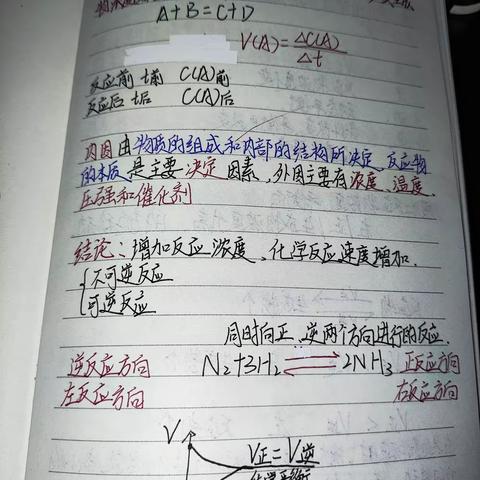 A+B=C+D
V(A)=ΔC(A)/Δt
反应前 t前 C(A)前
反应后 t后 C(A)后
内因由物质的组成和内部的结构所决定、反应物
的本质是主要决定因素,外因主要有浓度、温度、
压强和催化剂
结论:增加反应浓度、化学反应速度增加.
{不可逆反应
可逆反应
同时向正、逆两个方向进行的反应.
逆反应方向 N₂+3H₂⇌2NH₃ 正反应方向
左反应方向 右反应方向
V V正=V逆
化学平衡